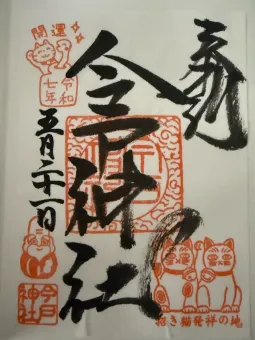 奉拝
今戸神社
開運
令和
七年
五月二十一日
今戸
神社
招き猫發祥の地